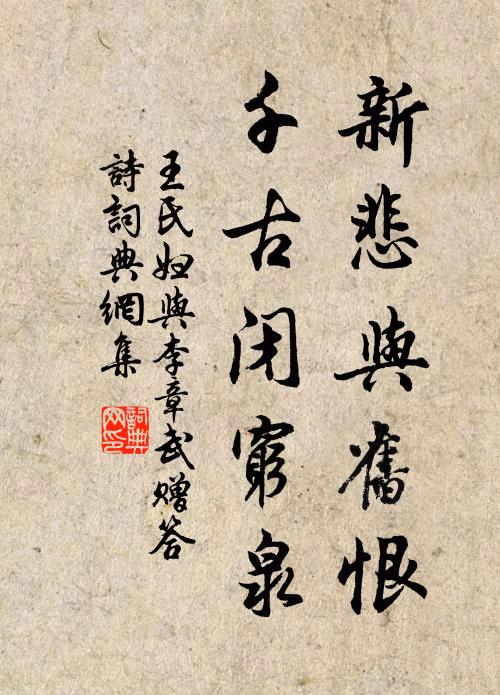 新悲與舊恨
千古閉窮泉
王氏婦與李章武贈答
詩詞典網集
詞典網印